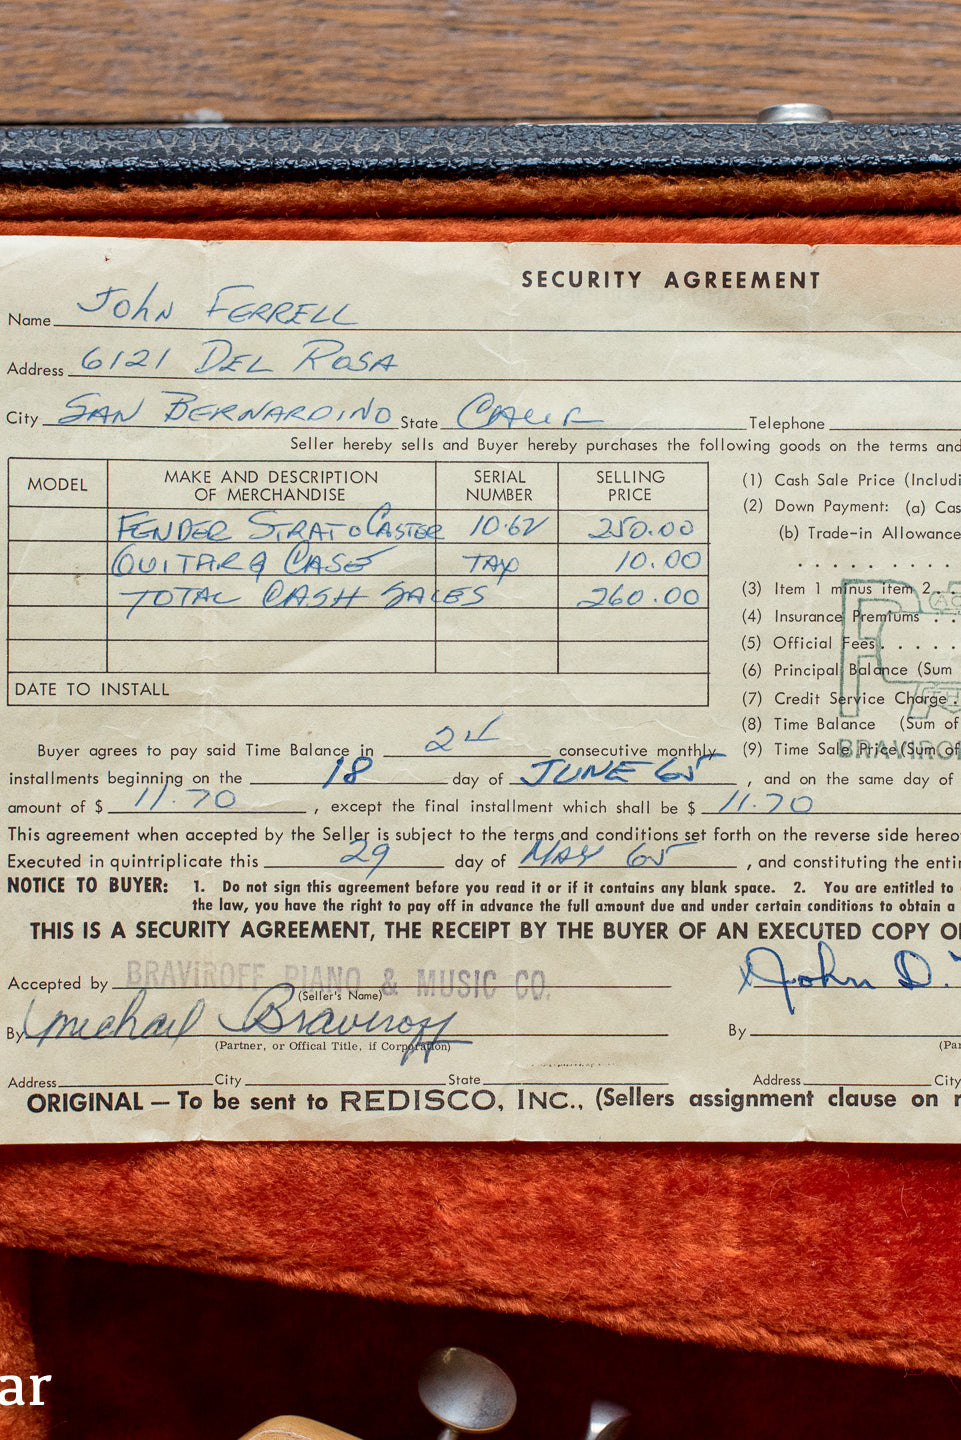 SECURITY AGREEMENT
Name John FERRELL
Address 6121 DEL ROSA
City SAN BERNARDINO State CALIF Telephone
Seller hereby sells and Buyer hereby purchases the following goods on the terms and
MODEL MAKE AND DESCRIPTION OF MERCHANDISE SERIAL NUMBER SELLING PRICE
FENDER STRATOCASTER 10.62 250.00
GUITAR & CASE TAX 10.00
TOTAL CASH SALES 260.00
DATE TO INSTALL
(1) Cash Sale Price (Includi
(2) Down Payment: (a) Cas
(b) Trade-in Allowance
(3) Item 1 minus item 2. .
(4) Insurance Premiums . .
(5) Official Fees. . . . .
(6) Principal Balance (Sum
(7) Credit Service Charge .
(8) Time Balance (Sum of
(9) Time Sale Price (Sum of
BRAVIRO
Buyer agrees to pay said Time Balance in 24 consecutive monthly
installments beginning on the 18 day of JUNE 65, and on the same day of
amount of $ 11.70, except the final installment which shall be $ 11.70
This agreement when accepted by the Seller is subject to the terms and conditions set forth on the reverse side hereo
Executed in quintriplicate this 29 day of MAY 65, and constituting the enti
NOTICE TO BUYER: 1. Do not sign this agreement before you read it or if it contains any blank space. 2. You are entitled to
the law, you have the right to pay off in advance the full amount due and under certain conditions to obtain a
THIS IS A SECURITY AGREEMENT, THE RECEIPT BY THE BUYER OF AN EXECUTED COPY O
Accepted by BRAVIROFF PIANO & MUSIC CO. John D.
(Seller's Name)
By Michael Braviroff By
(Partner, or Offical Title, if Corporation) (Pa
Address City State Address City
ORIGINAL — To be sent to REDISCO, INC., (Sellers assignment clause on r
ar